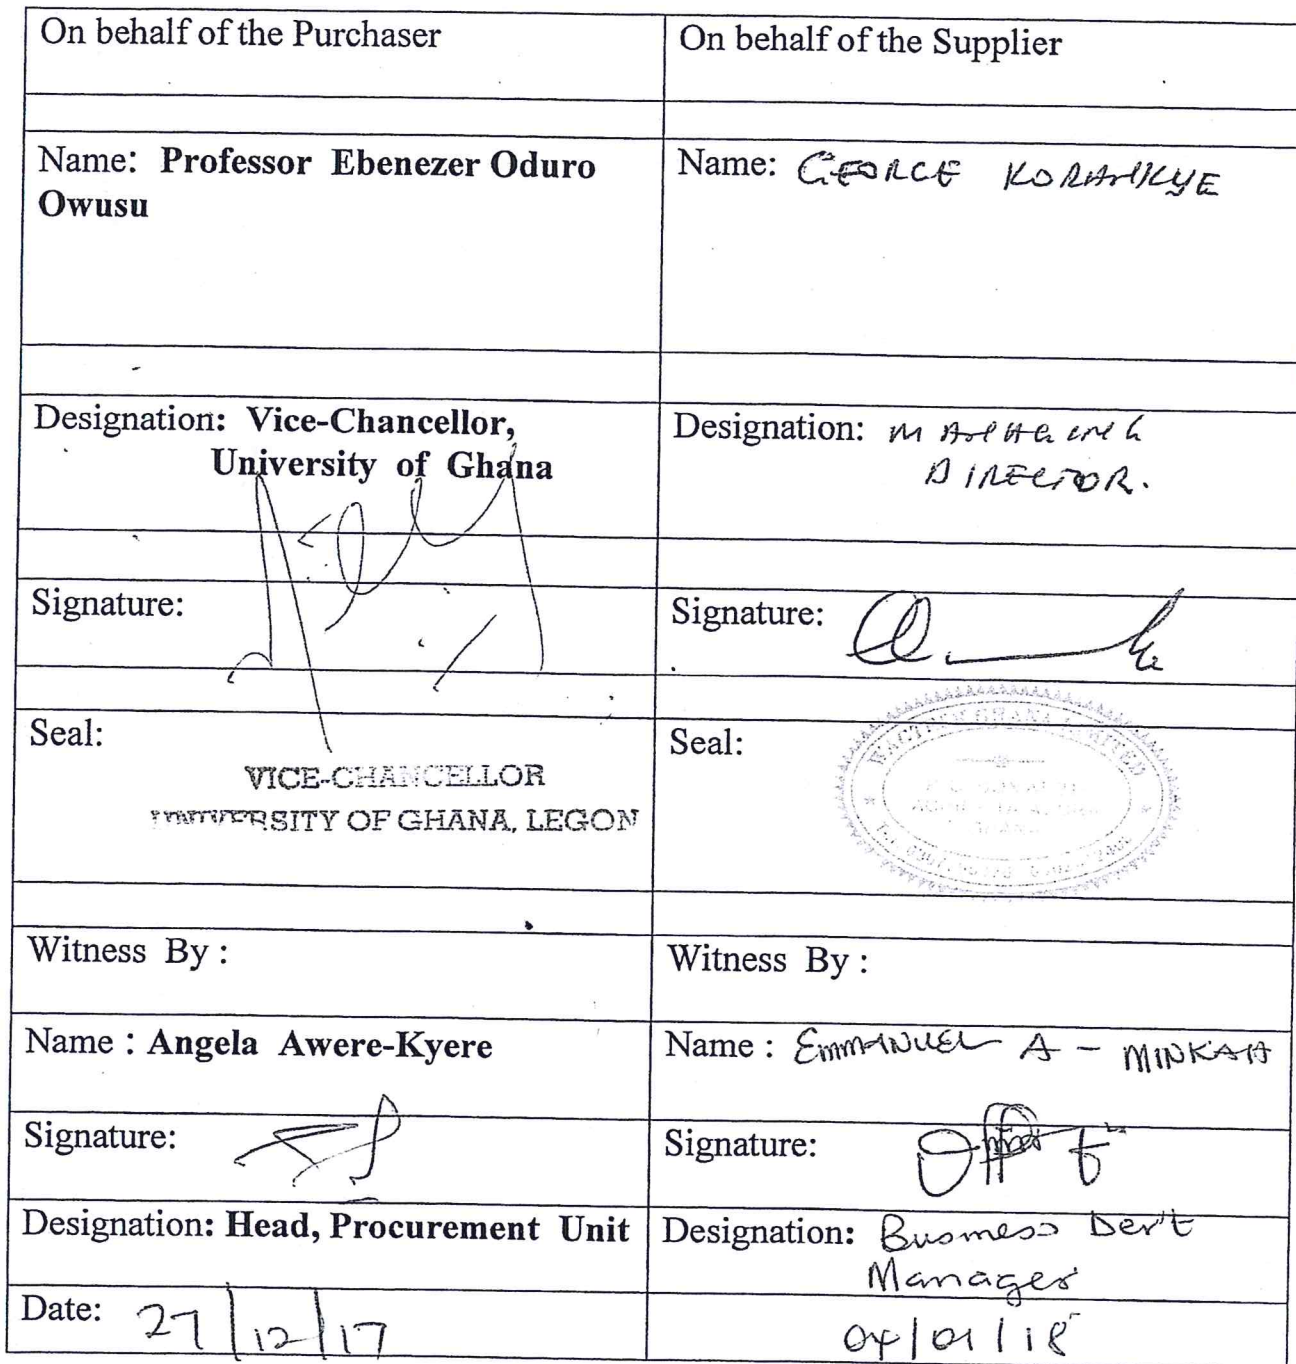 On behalf of the Purchaser
On behalf of the Supplier
Name: Professor Ebenezer Oduro
Owusu
Name: GEORGE KORANKYE
Designation: Vice-Chancellor,
University of Ghana
Designation: MANAGING
DIRECTOR.
Signature:
Signature:
Seal:
VICE-CHANCELLOR
UNIVERSITY OF GHANA, LEGON
Seal:
GHANA LIMITED
Witness By :
Witness By :
Name : Angela Awere-Kyere
Name : EMMANUEL A - MINKAH
Signature:
Signature:
Designation: Head, Procurement Unit
Designation: Business Dev't
Manager
Date: 27/12/17
04/01/18